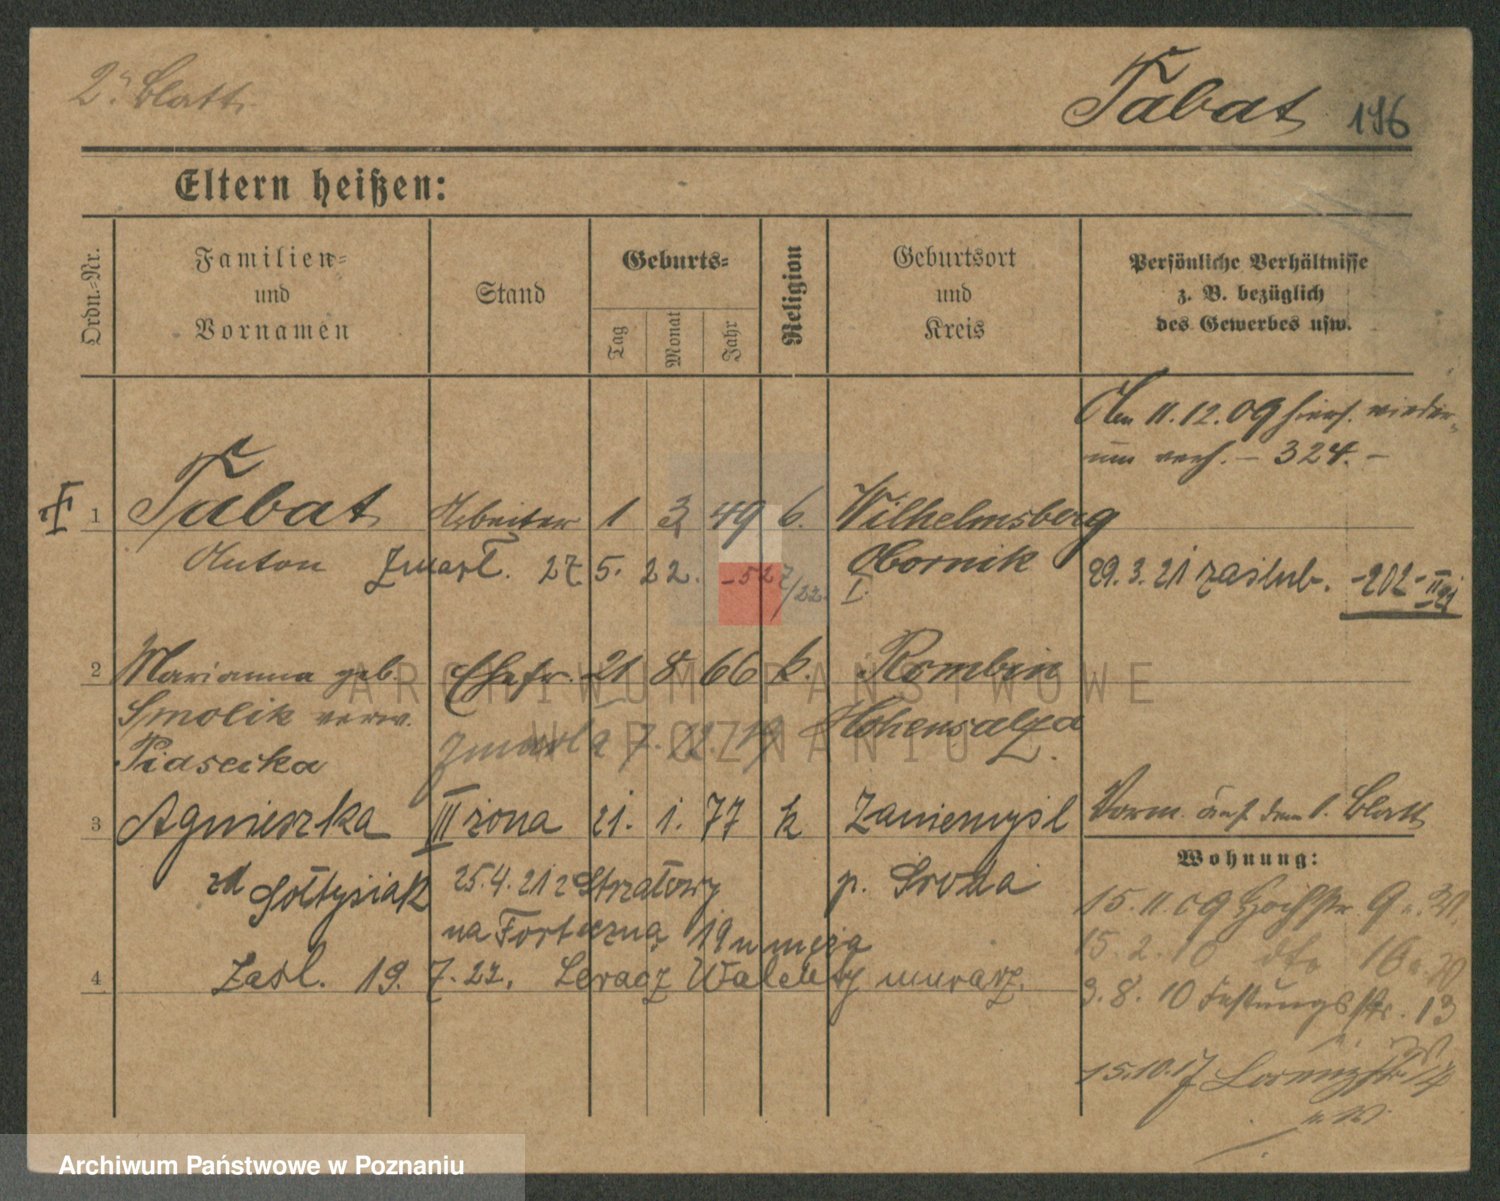 2. Blatt.
Tabat 196
Eltern heißen:
Ordn.-Nr.
Familien- und Vornamen
Stand
Geburts-
Tag
Monat
Jahr
Religion
Geburtsort und Kreis
Persönliche Verhältnisse z. B. bezüglich des Gewerbes usw.
Am 11.12.09 hiers. wieder-
um verh. – 324. –
1 Tabat Arbeiter 1 3 49 k. Wilhelmsberg
Anton Zmarł. 27 5. 22. –527/22. Obornik
29.3.21 zaślub. –202–II 21
2 Marianna geb. Ehefr. 21 8 66 k. Rombin
Smolik verw. zmarła 7. 12. 19 Hohensalza
Piasecka
3 Agnieszka III żona 21. 1. 77 k Zaniemyśl
Vorm. auf dem 1. Blatt
zd Sołtysiak 25.4.21 z Strzałowy p. Środa
na Forteczną 19 u męża
4 Zaśl. 19. 7. 22. Leracz Walenty murarz.
Wohnung:
15.11.09 Hochstr. 9
15.2.10 dto 16
3.8.10 Festungsstr. 13
15.10.17 Lorenzstr. 14
ARCHIWUM PAŃSTWOWE
W POZNANIU
Archiwum Państwowe w Poznaniu